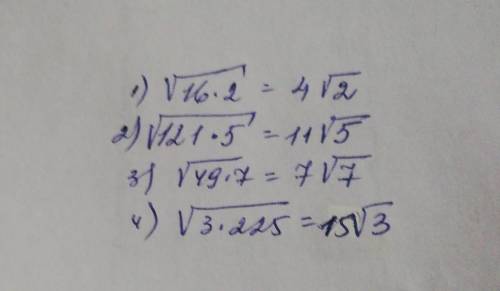 1) √16·2 = 4√2
2) √121·5 = 11√5
3) √49·7 = 7√7
4) √3·225 = 15√3